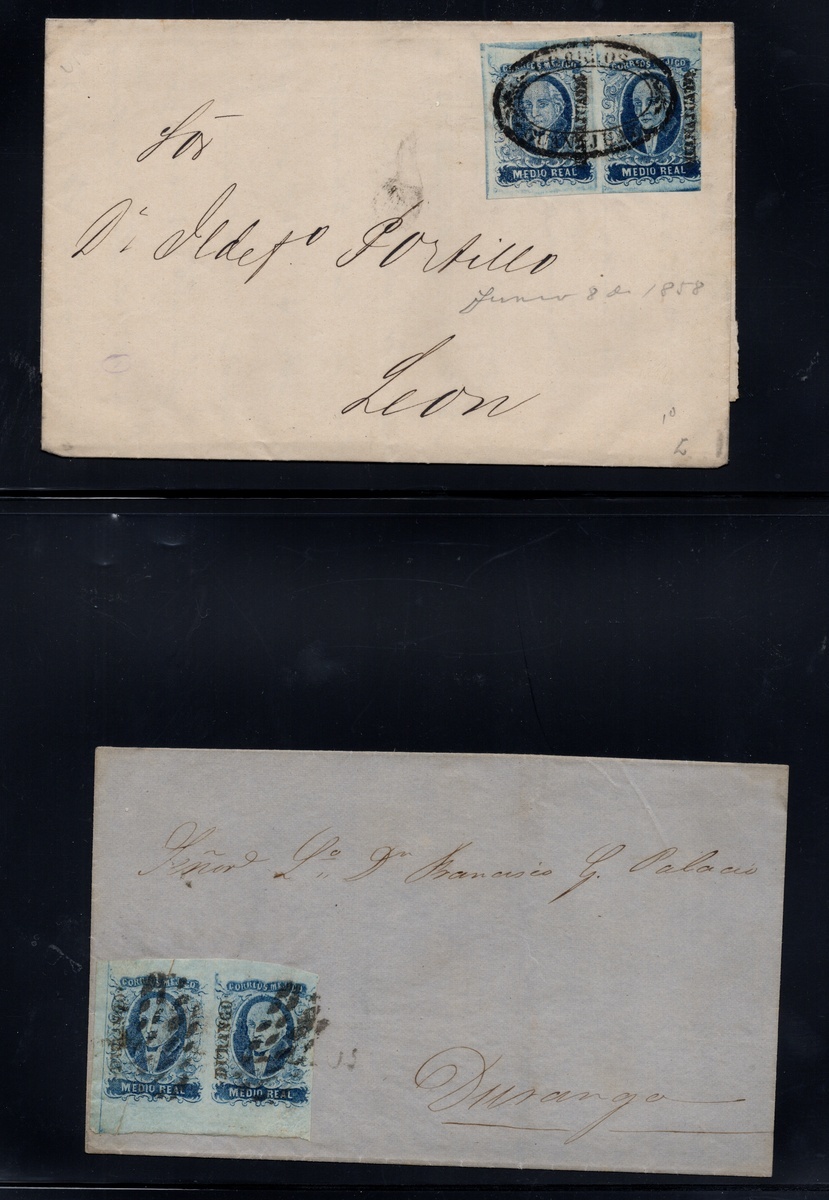 CORREOS MEJICO CORREOS MEJICO
MEDIO REAL MEDIO REAL
Sõr
Dn Ildefo Portillo
Junio 8 de 1858
Leon
10
L
Señor Lo Dn Francisco G. Palacio
CORREOS MEJICO CORREOS MEJICO
MEDIO REAL MEDIO REAL
Durango